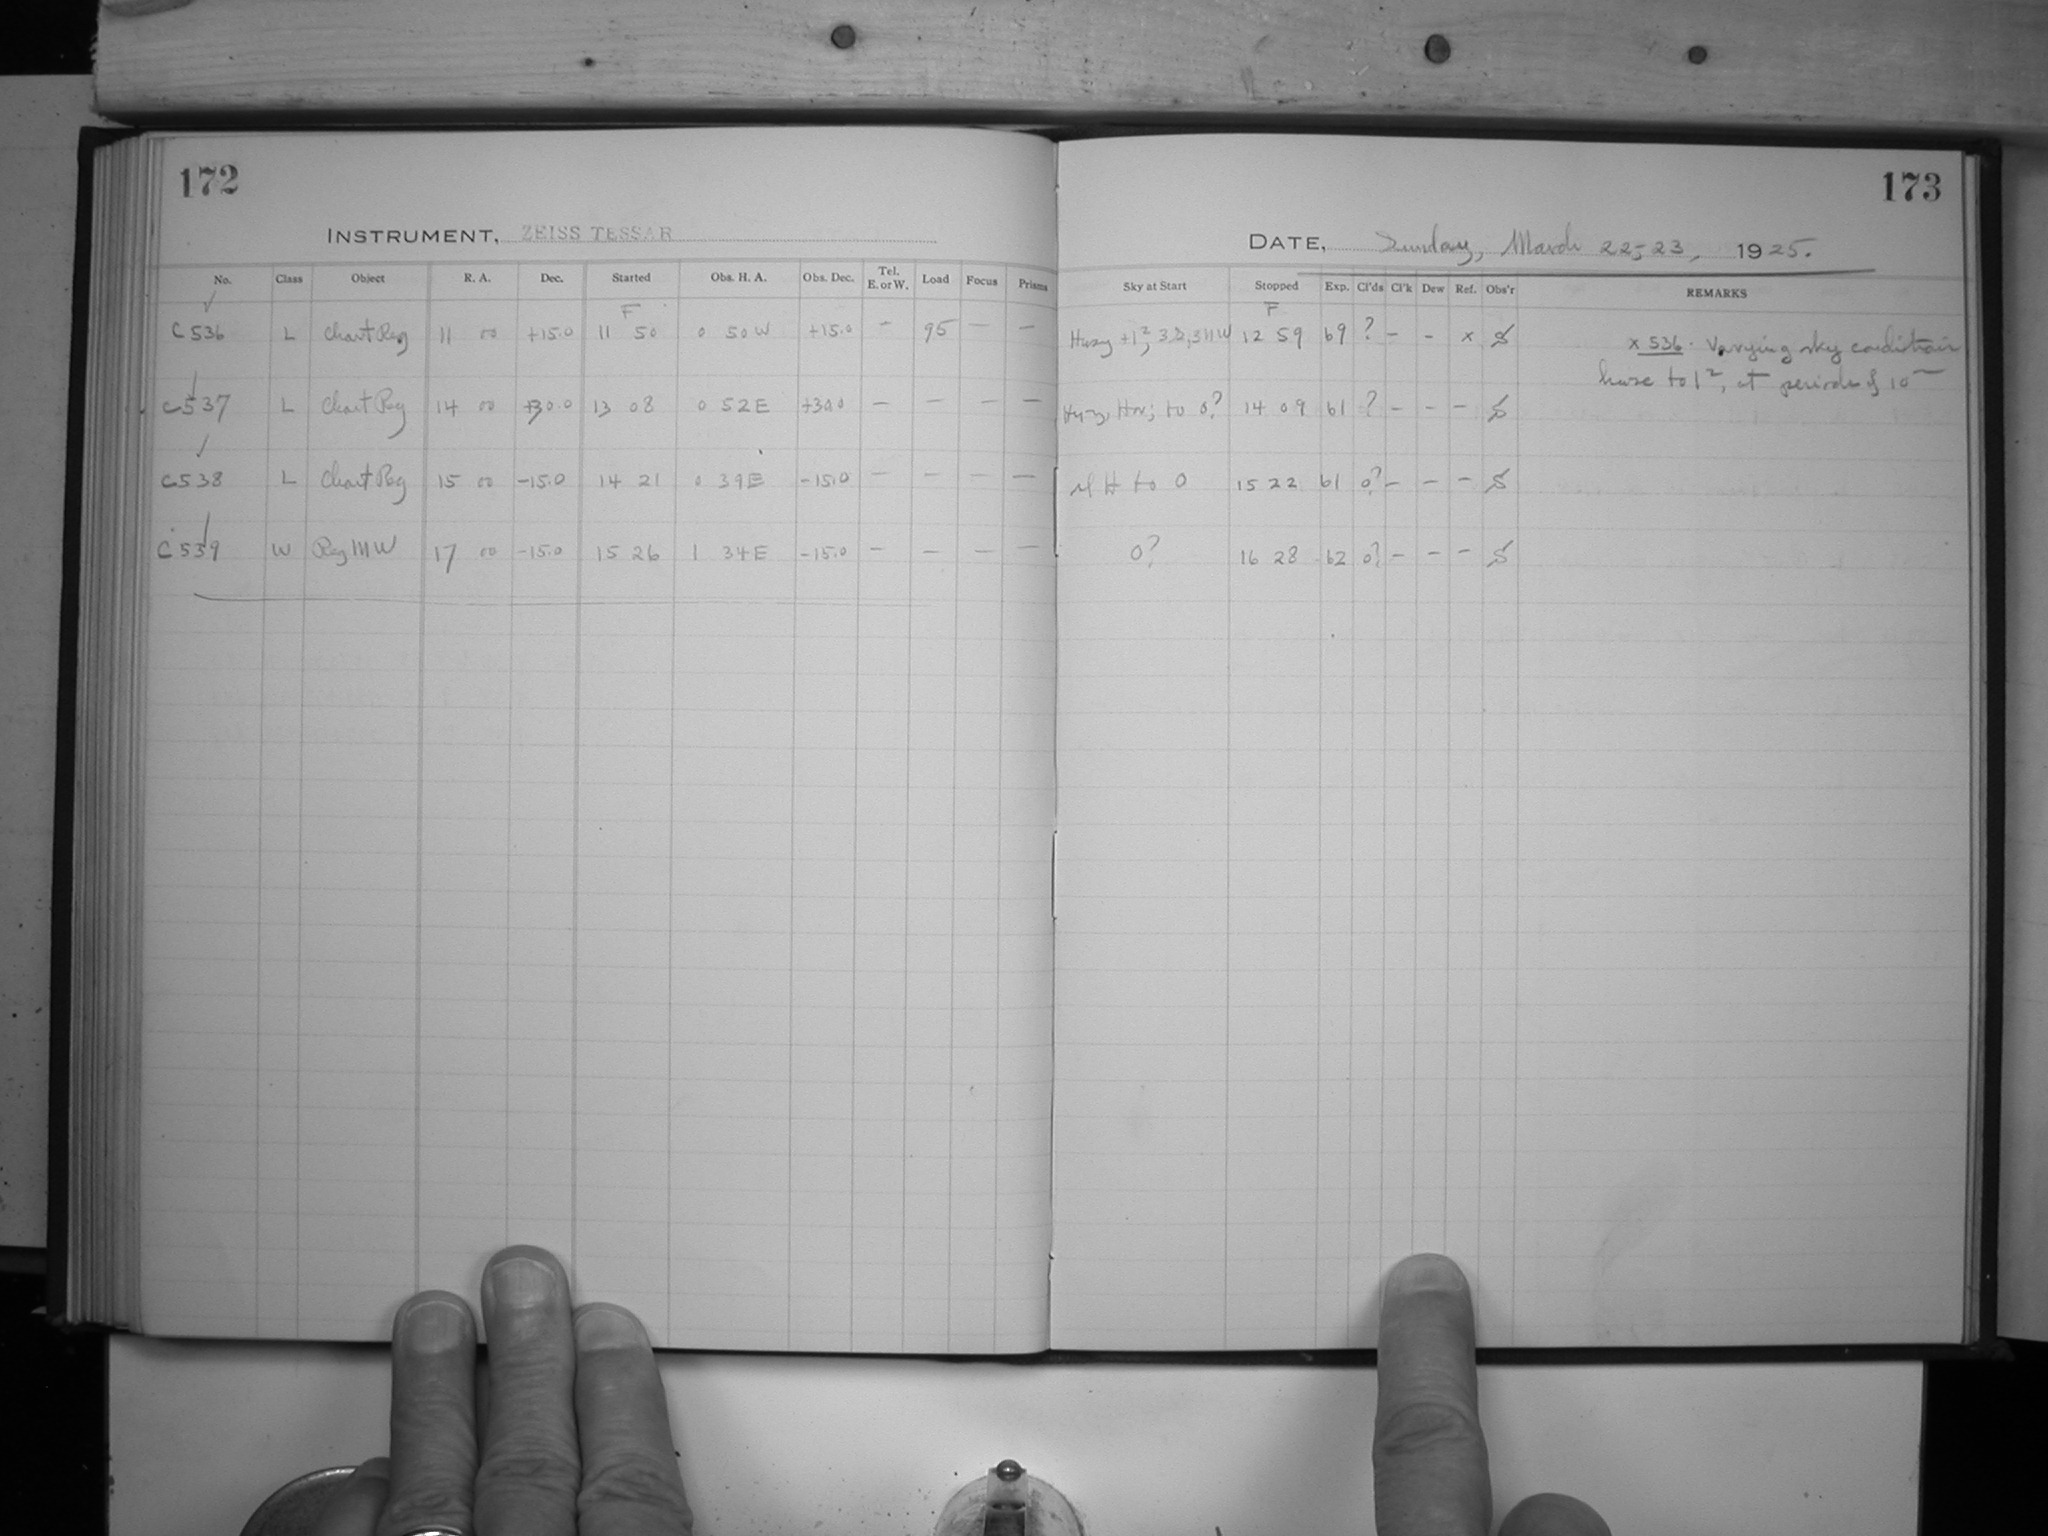 172
173
INSTRUMENT, ZEISS TESSAR
DATE, Sunday, March 22-23, 1925.
No. Class Object R. A. Dec. Started Obs. H. A. Obs. Dec. Tel. E. or W. Load Focus Prisms Sky at Start Stopped Exp. Cl'ds Cl'k Dew Ref. Obs'r REMARKS
F F
C 536 L Chart Reg 11 00 +15.0 11 50 0 50 W +15.0 - 95 - - Hazy +1², 12 59 69 ? - - x
x 536. Varying sky condition
haze to 1², at periods of 10
C 537 L Chart Reg 14 00 +30.0 13 08 0 52 E +30.0 - - - - to 0? 14 09 61 ? - - -
C 538 L Chart Reg 15 00 -15.0 14 21 0 39 E -15.0 - - - - H to 0 15 22 61 0? - - -
C 539 W Reg MW 17 00 -15.0 15 26 1 34 E -15.0 - - - - 0? 16 28 62 0? - - -